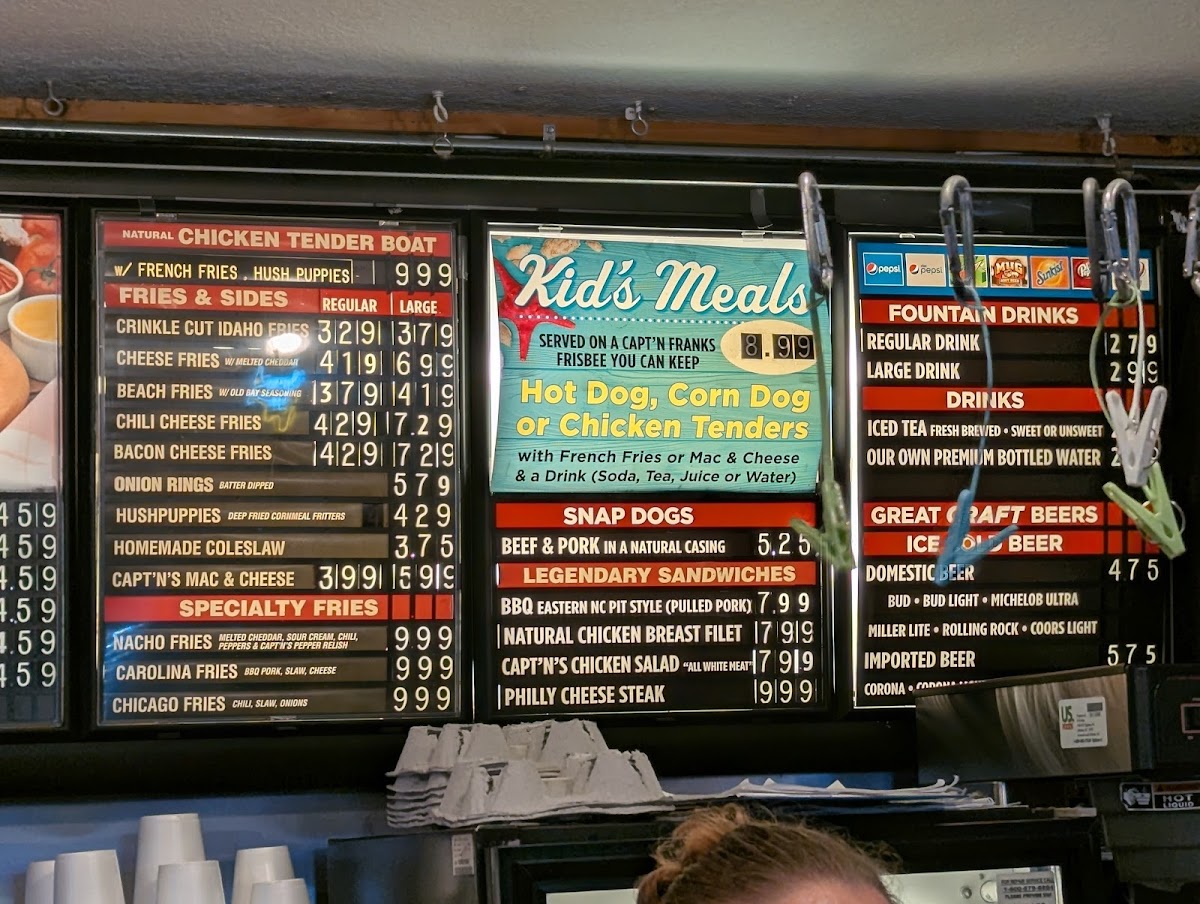 459
459
4.59
4.59
4.59
4.59
NATURAL CHICKEN TENDER BOAT
W/ FRENCH FRIES , HUSH PUPPIES 999
FRIES & SIDES REGULAR LARGE
CRINKLE CUT IDAHO FRIES 329 379
CHEESE FRIES W/ MELTED CHEDDAR 419 699
BEACH FRIES W/ OLD BAY SEASONING 379 419
CHILI CHEESE FRIES 429 7.29
BACON CHEESE FRIES 429 729
ONION RINGS BATTER DIPPED 579
HUSHPUPPIES DEEP FRIED CORNMEAL FRITTERS 429
HOMEMADE COLESLAW 3.75
CAPT'N'S MAC & CHEESE 399 599
SPECIALTY FRIES
NACHO FRIES MELTED CHEDDAR, SOUR CREAM, CHILI, PEPPERS & CAPT'N'S PEPPER RELISH 999
CAROLINA FRIES BBQ PORK, SLAW, CHEESE 999
CHICAGO FRIES CHILI, SLAW, ONIONS 999
Kid's Meals
SERVED ON A CAPT'N FRANKS
FRISBEE YOU CAN KEEP
8.99
Hot Dog, Corn Dog
or Chicken Tenders
with French Fries or Mac & Cheese
& a Drink (Soda, Tea, Juice or Water)
SNAP DOGS
BEEF & PORK IN A NATURAL CASING 5.25
LEGENDARY SANDWICHES
BBQ EASTERN NC PIT STYLE (PULLED PORK) 7.99
NATURAL CHICKEN BREAST FILET 799
CAPT'N'S CHICKEN SALAD "ALL WHITE MEAT" 799
PHILLY CHEESE STEAK 999
pepsi pepsi MUG Sunkist
FOUNTAIN DRINKS
REGULAR DRINK 279
LARGE DRINK 299
DRINKS
ICED TEA FRESH BREWED • SWEET OR UNSWEET
OUR OWN PREMIUM BOTTLED WATER
GREAT CRAFT BEERS
ICE COLD BEER
DOMESTIC BEER 475
BUD • BUD LIGHT • MICHELOB ULTRA
MILLER LITE • ROLLING ROCK • COORS LIGHT
IMPORTED BEER 575
CORONA •
US
HOT
LIQUID